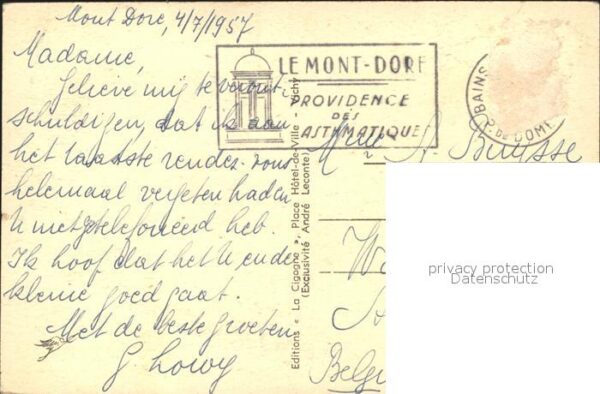 Mont Dore, 4/7/1957
Madame,
Gelieve mij te veront-
schuldigen, dat ik aan
het laatste rendez-vous
helemaal vergeten had en
U niet getelefoneerd heb.
Ik hoop dat het U en de
kleine goed gaat.
Met de beste groeten
G. Lowy
LE MONT-DORE
PROVIDENCE
DES
ASTHMATIQUES
BAINS
P. DE DOME
Editions « La Cigogne », Place Hôtel-de-Ville - Vichy
(Exclusivité André Leconte)
Buysse
Belg
privacy protection
Datenschutz